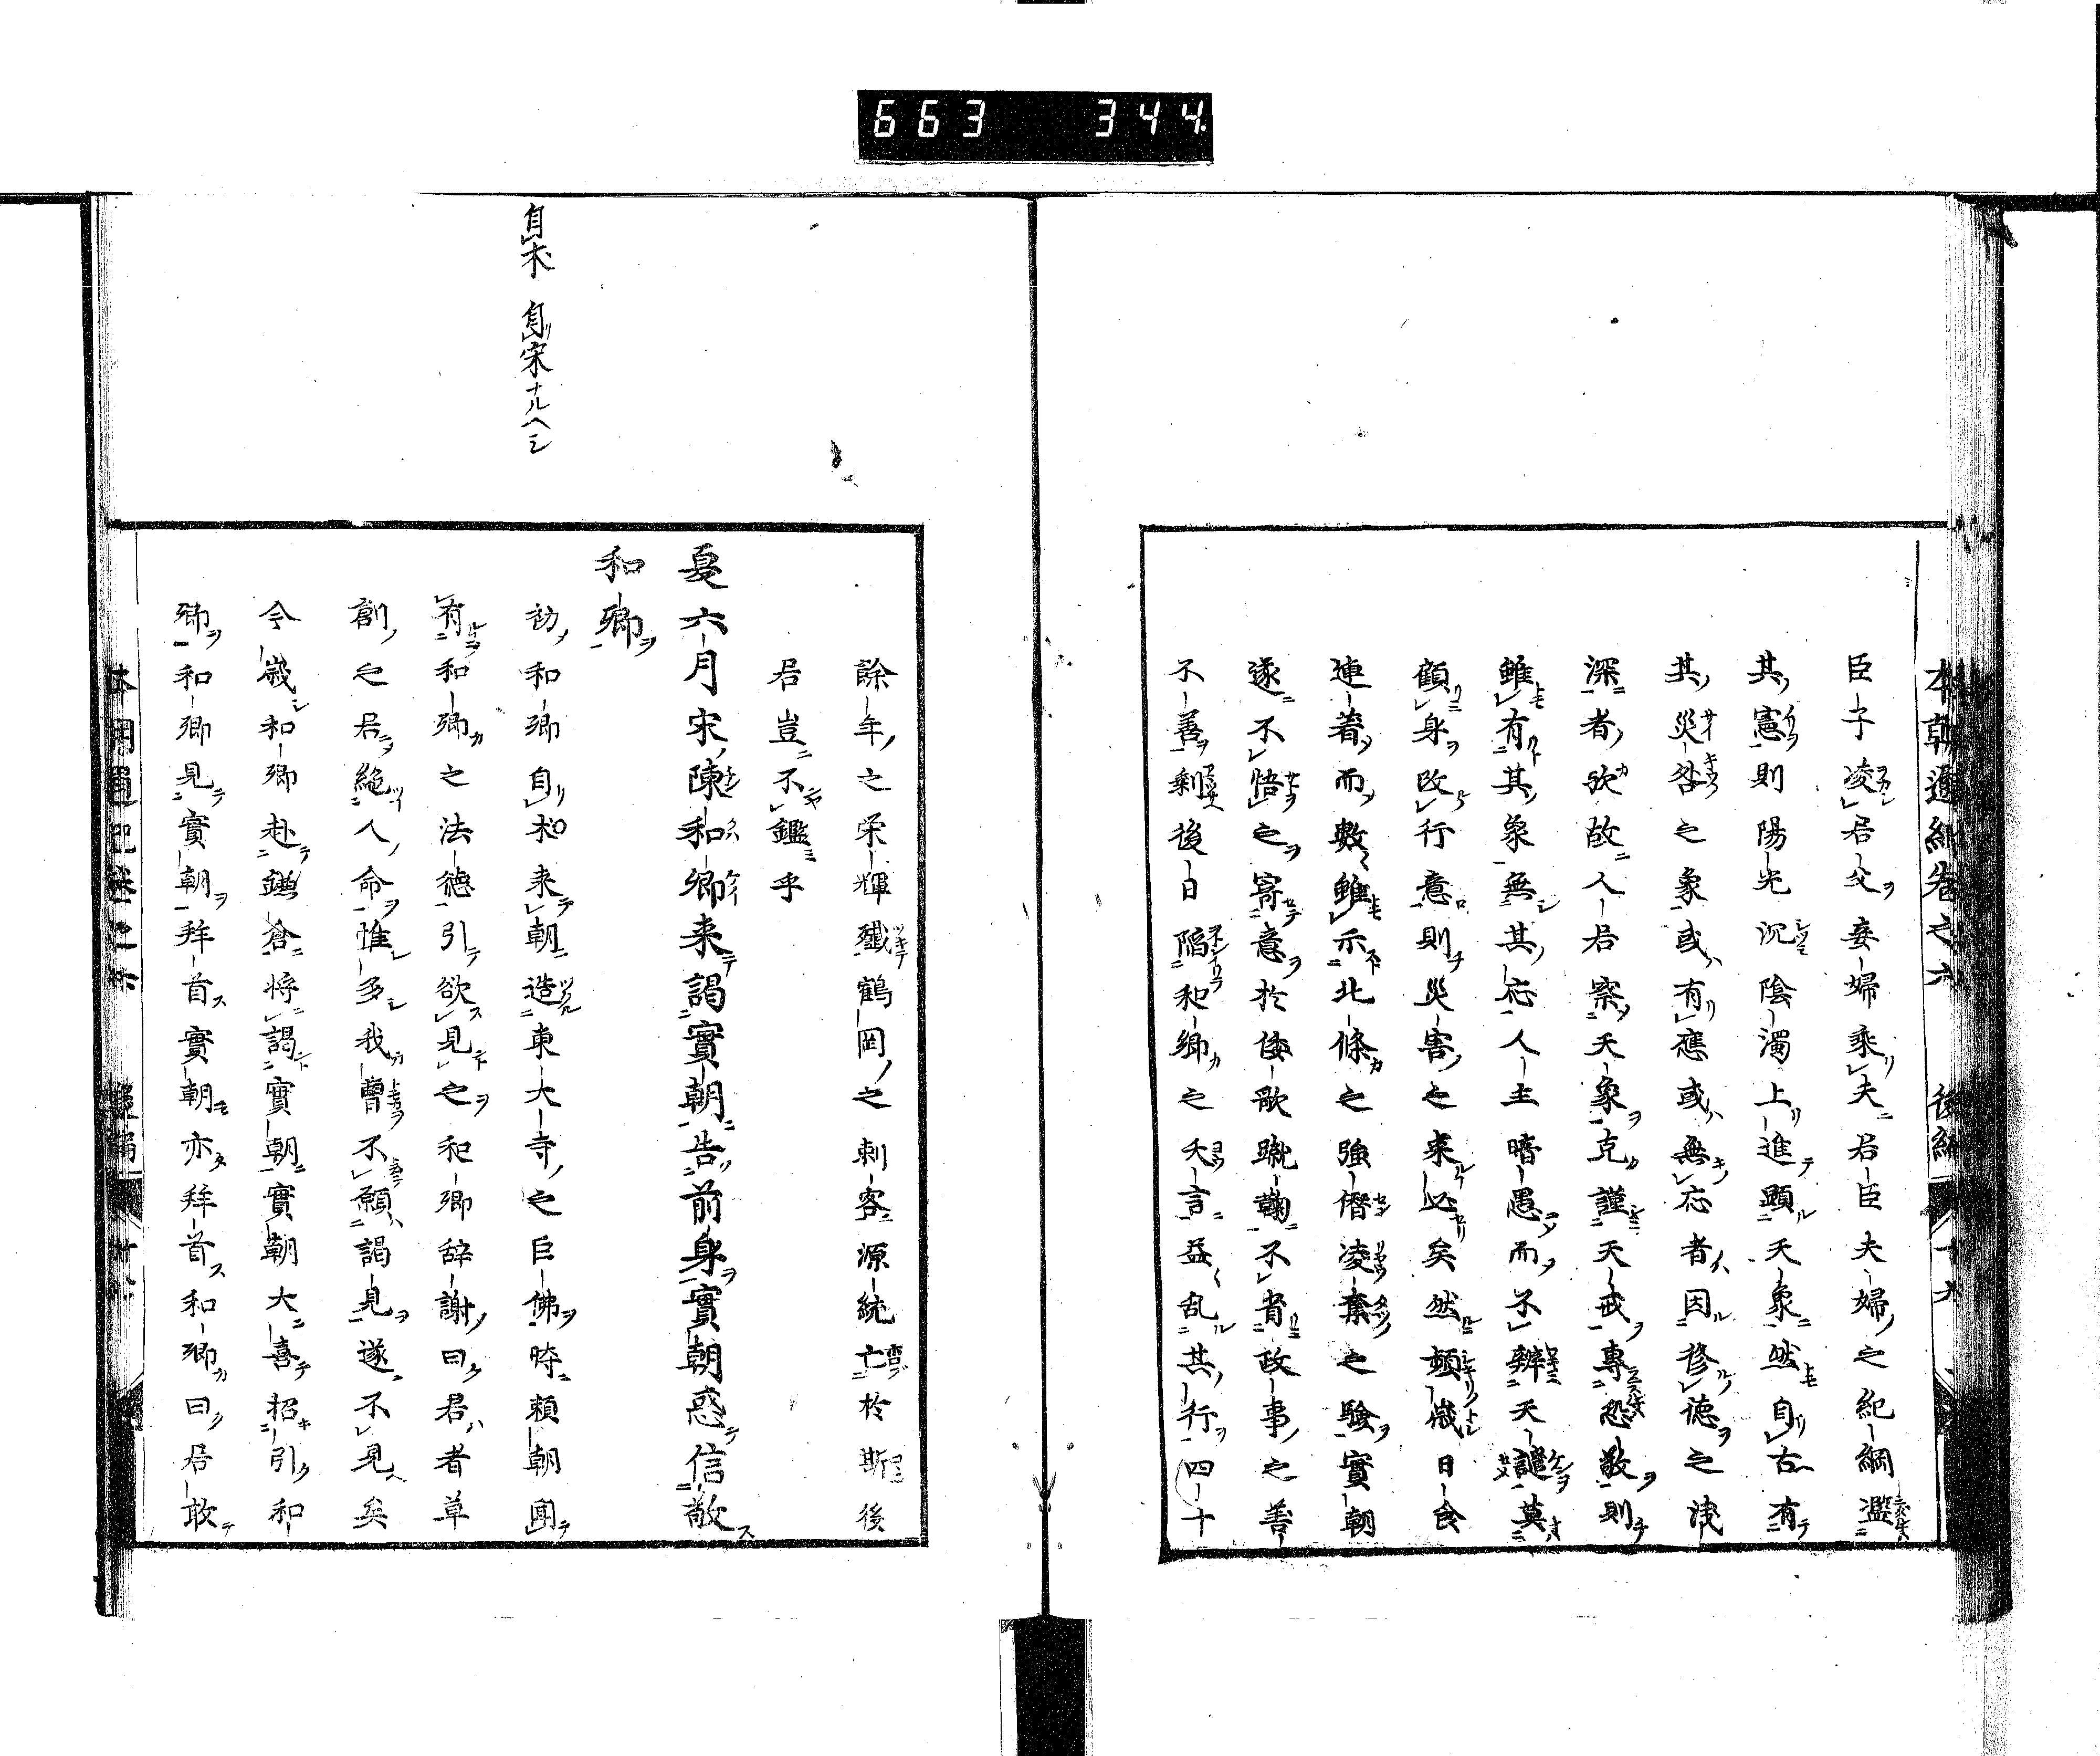 663 344
本朝通紀卷之六 後編
臣子凌君父妾婦乘夫君臣夫婦之紀綱濫
其憲則陽光沉陰濁上進顕天象然自古有
其災咎之象或有應或無応者因修德之淺
深者欤故人君察天象克謹天戒專恐敬則
雖有其象無其応人主暗愚而不辨天譴莫
顧身改行意則災害之来必矣然頻歳日食
連著而數〻雖示北條之強僭凌奪之驗實朝
遂不悟之寄意於倭歌蹴鞠不省政事之善
不善剩後日陥和郷之夭言益乱其行四十
餘年之栄輝殲鶴岡之刺客源統亡於斯後
君豈不鑑乎
夏六月宋陳和卿来謁實朝告前身實朝惑信敬
和卿
初和卿自朩来朝造東大寺之巨佛時頼朝圃
有和卿之法徳引欲見之和卿辞謝曰君者草
創之君絶人命惟多我曹不願謁見遂不見矣
今歳和卿赴鎌倉将謁實朝實朝大喜招引和
卿和卿見實朝拜首實朝亦拜首和卿曰君敢
自朩 自宋ナルヘシ